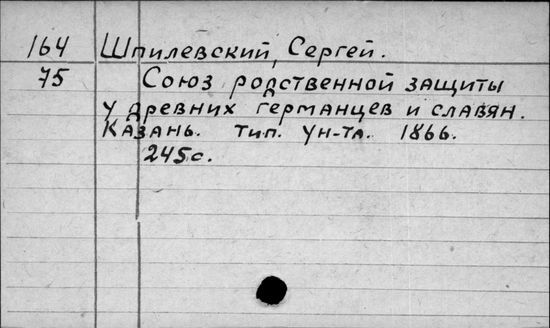 164 Шпилевский, Сергей.
75 Союз родственной защиты
у древних германцев и славян.
Казань. Тип. Ун-та. 1866.
245с.